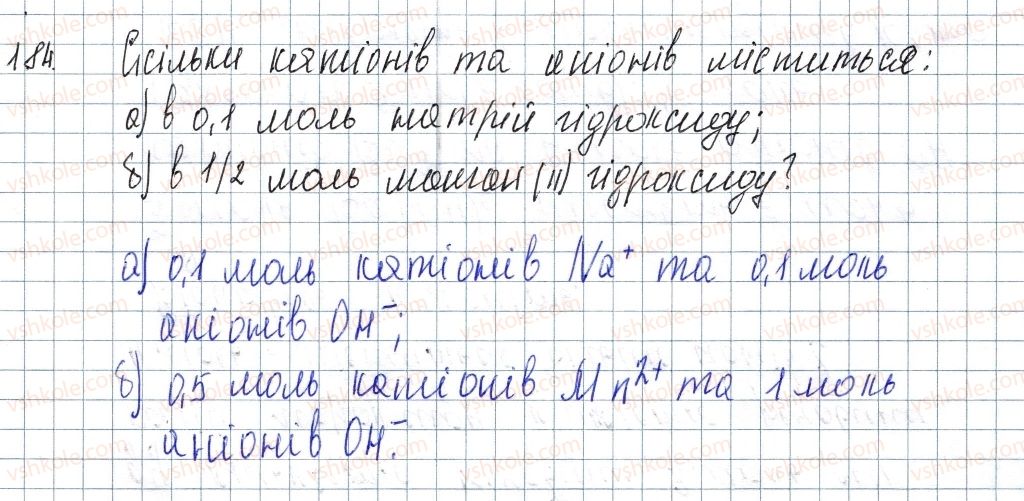 184. Скільки катіонів та аніонів міститься:
а) в 0,1 моль натрій гідроксиду;
б) в 1/2 моль манган (II) гідроксиду?
а) 0,1 моль катіонів Na⁺ та 0,1 моль
аніонів OH⁻;
б) 0,5 моль катіонів Mn²⁺ та 1 моль
аніонів OH⁻.